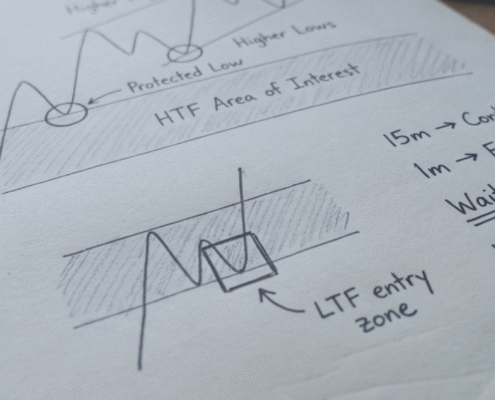 Higher
Higher Lows
Protected Low
HTF Area of Interest
15m →
1m →
LTF entry
zone